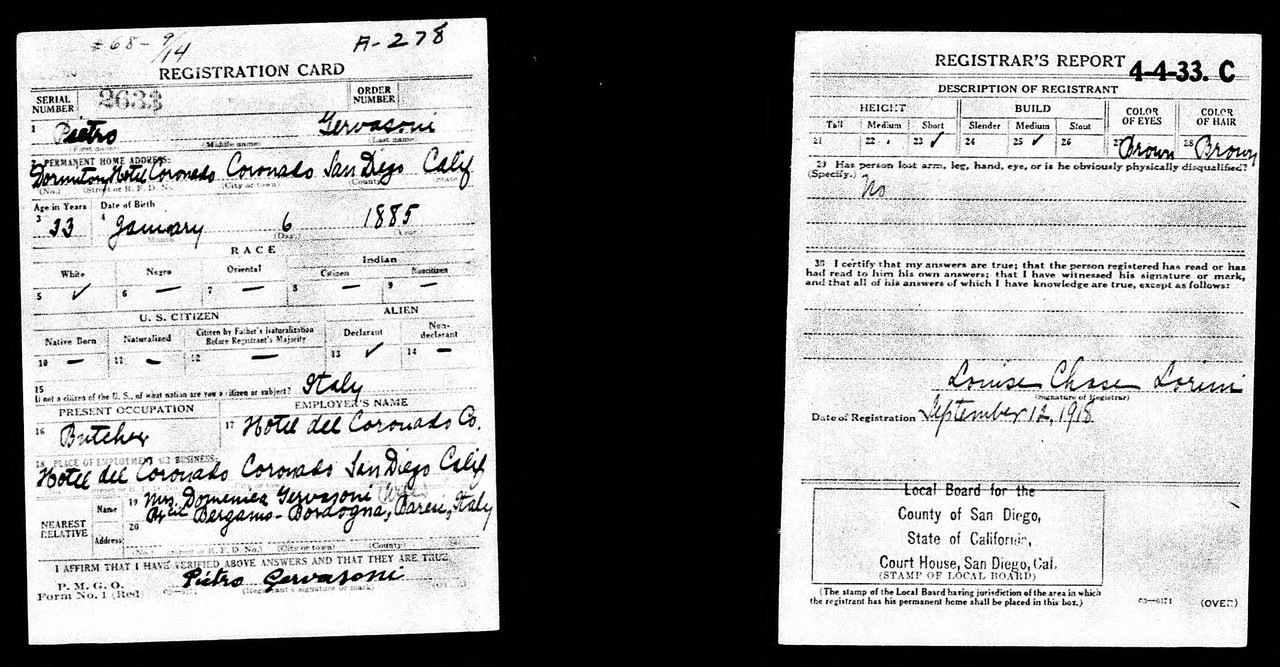 #68-9/14 A-278
REGISTRATION CARD
SERIAL NUMBER 2633 ORDER NUMBER
1 Pietro Gervasoni
(First name) (Middle name) (Last name)
2 PERMANENT HOME ADDRESS:
Hotel Coronado Coronado San Diego Calif.
(No.) (Street or R. F. D. No.) (City or town) (County) (State)
Age in Years Date of Birth
3 33 4 January 6 1885
Month (Day) Year
RACE
White Negro Oriental Indian
Citizen Noncitizen
5 ✓ 6 — 7 — 8 — 9 —
U. S. CITIZEN ALIEN
Native Born Naturalized Citizen by Father's Naturalization Before Registrant's Majority Declarant Non-declarant
10 — 11 — 12 — 13 ✓ 14 —
15 If not a citizen of the U. S., of what nation are you a citizen or subject? Italy
PRESENT OCCUPATION EMPLOYER'S NAME
16 Butcher 17 Hotel del Coronado Co.
18 PLACE OF EMPLOYMENT OR BUSINESS:
Hotel del Coronado Coronado San Diego Calif
NEAREST RELATIVE Name 19 Mrs. Domenica Gervasoni (Wife)
Address 20 Bergamo-Bordogna, Italy
(No.) (Street or R. F. D. No.) (City or town) (County)
I AFFIRM THAT I HAVE VERIFIED ABOVE ANSWERS AND THAT THEY ARE TRUE
P. M. G. O. Pietro Gervasoni
Form No. 1 (Red) (Registrant's signature or mark)
REGISTRAR'S REPORT 4-4-33. C
DESCRIPTION OF REGISTRANT
HEIGHT BUILD COLOR OF EYES COLOR OF HAIR
Tall Medium Short Slender Medium Stout
21 22 23 ✓ 24 25 ✓ 26 27 Brown 28 Brown
29 Has person lost arm, leg, hand, eye, or is he obviously physically disqualified?
(Specify.) No
30 I certify that my answers are true; that the person registered has read or has
had read to him his own answers; that I have witnessed his signature or mark,
and that all of his answers of which I have knowledge are true, except as follows:
Louise Chase
(Signature of Registrar)
Date of Registration September 12, 1918
Local Board for the
County of San Diego,
State of California,
Court House, San Diego, Cal.
(STAMP OF LOCAL BOARD)
(The stamp of the Local Board having jurisdiction of the area in which
the registrant has his permanent home shall be placed in this box.)
03—6171 (OVER)